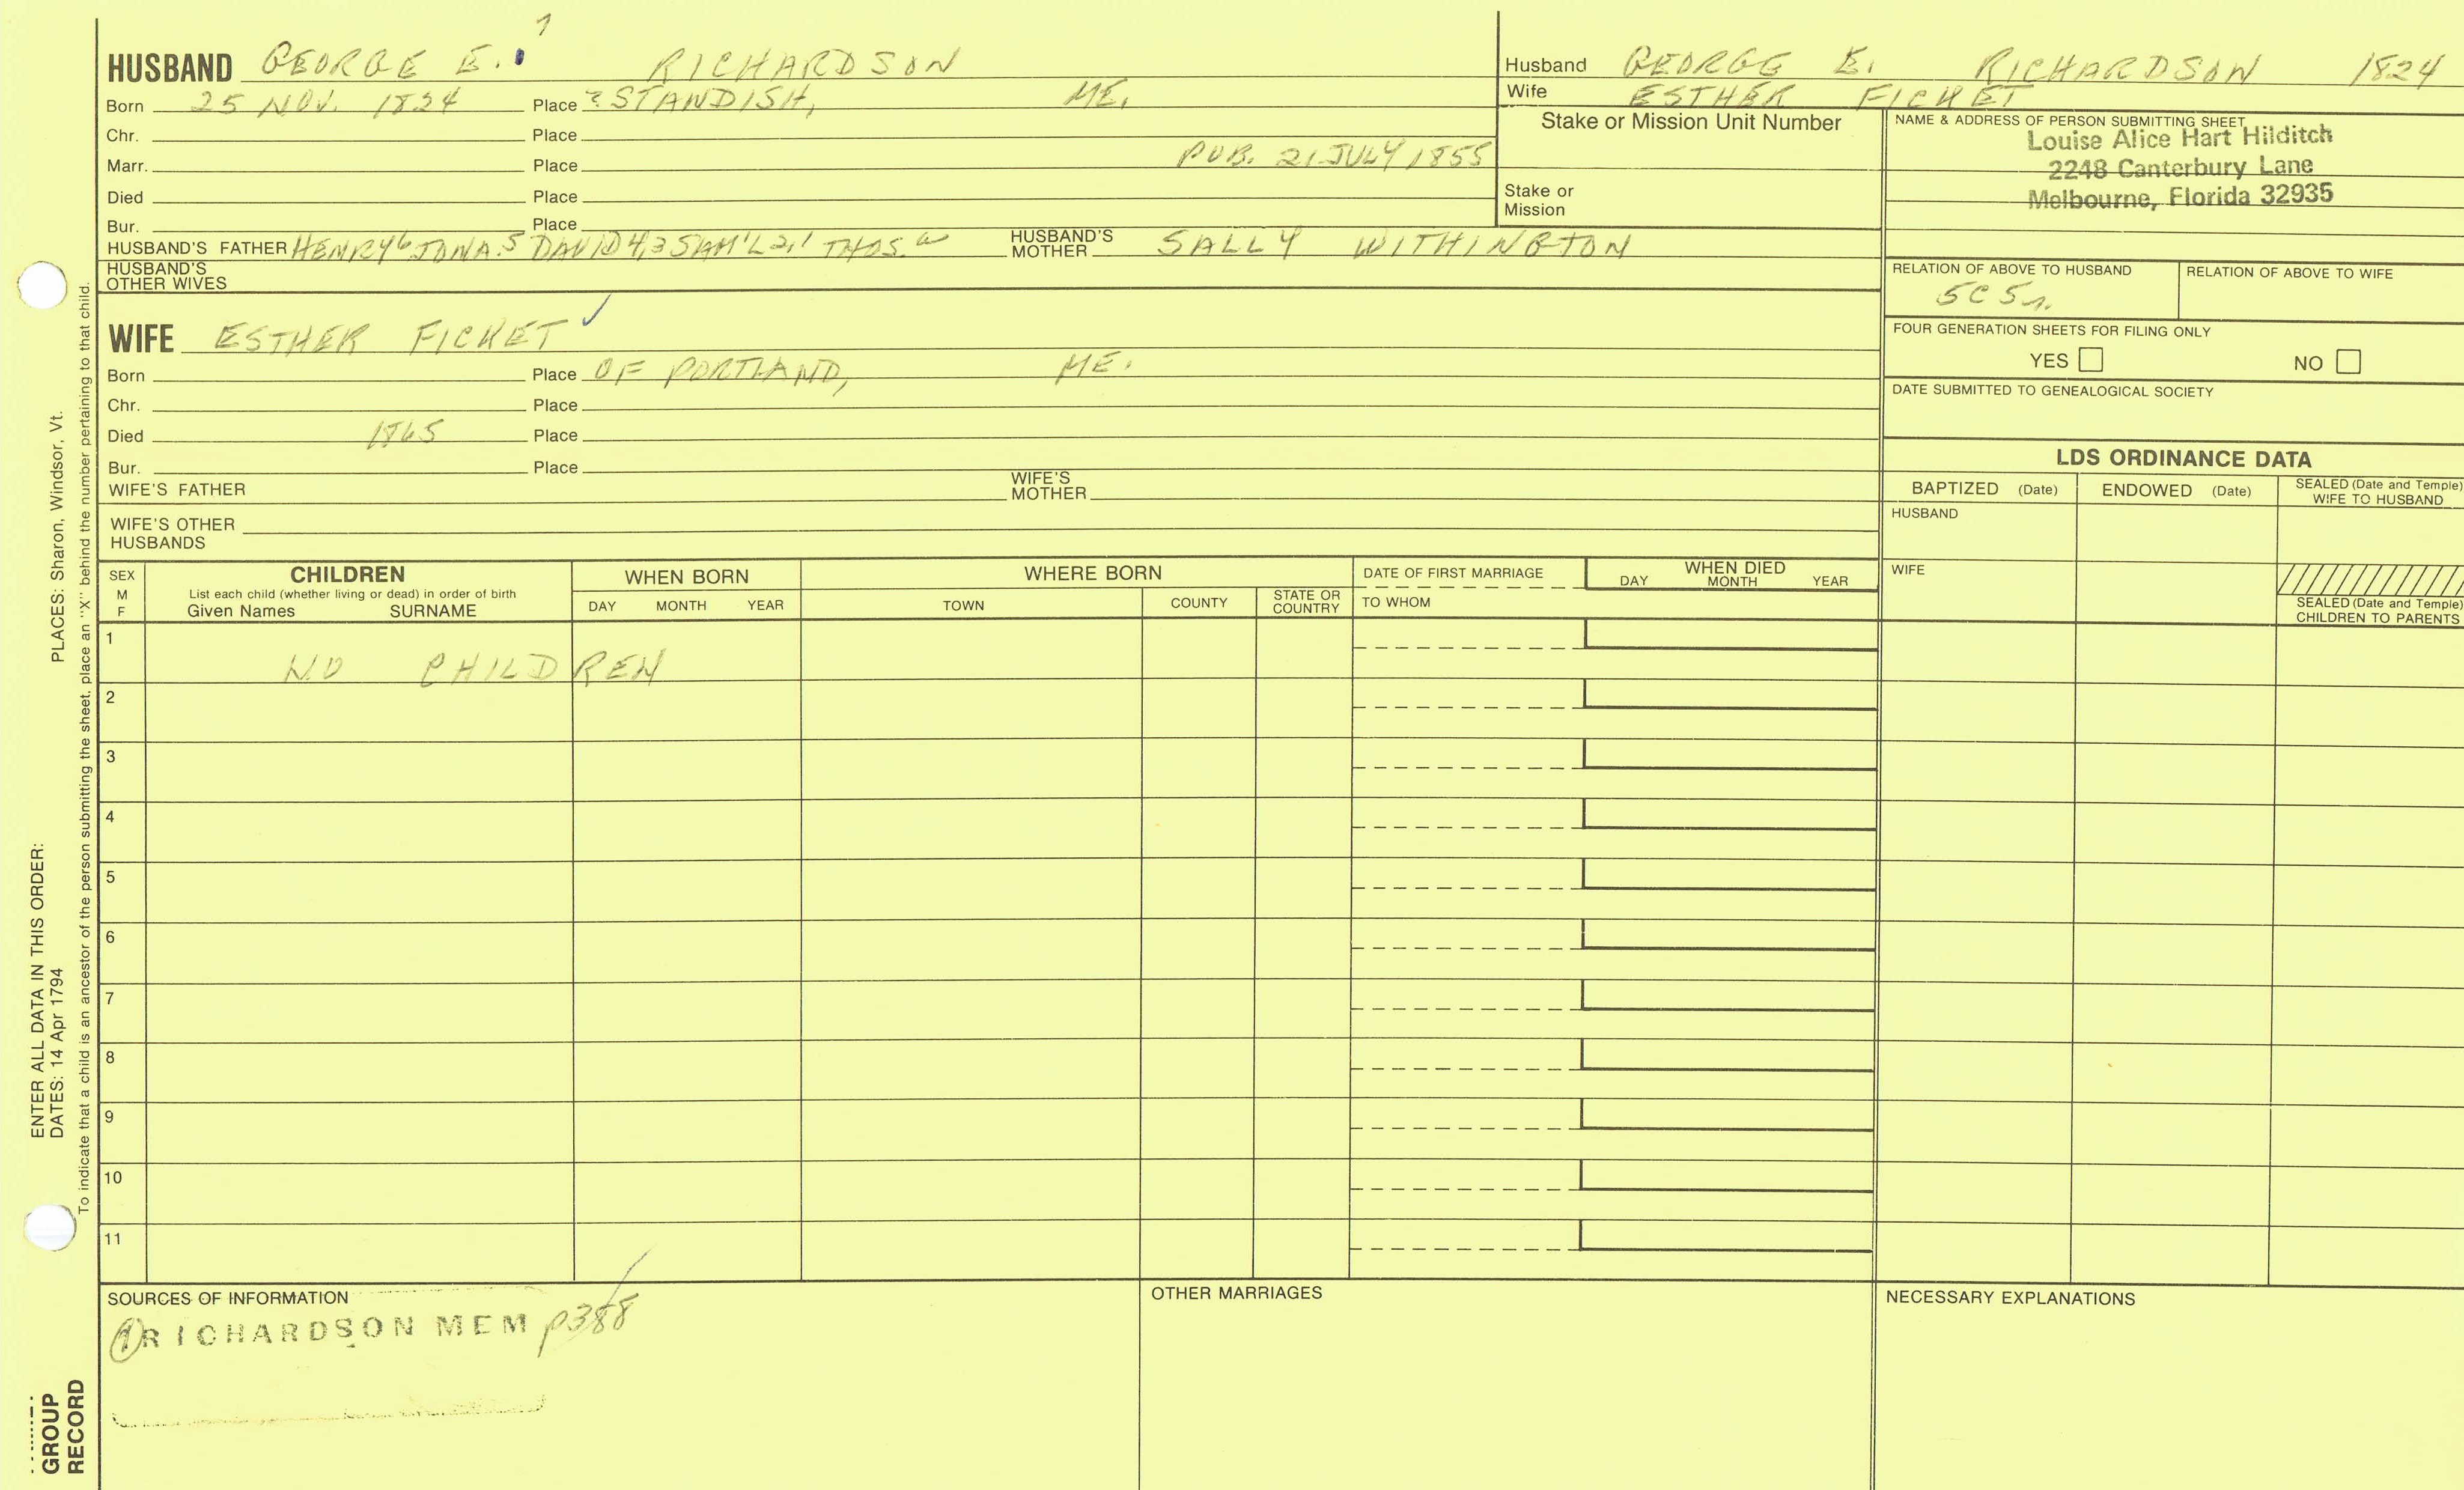 7
HUSBAND GEORGE E. RICHARDSON
Born 25 NOV. 1824 Place ? STANDISH, ME.
Chr. Place
Marr. Place PUB. 21 JULY 1855
Died Place
Bur. Place
HUSBAND'S FATHER HENRY 6 JONA. 5 DAVID 4,3 SAM'L 2,1 THOS. a HUSBAND'S MOTHER SALLY WITHINGTON
HUSBAND'S OTHER WIVES
WIFE ESTHER FICKET ✓
Born Place OF PORTLAND, ME.
Chr. Place
Died 1865 Place
Bur. Place
WIFE'S FATHER WIFE'S MOTHER
WIFE'S OTHER HUSBANDS
Husband GEORGE E. RICHARDSON 1824
Wife ESTHER FICKET
Stake or Mission Unit Number
Stake or Mission
NAME & ADDRESS OF PERSON SUBMITTING SHEET
Louise Alice Hart Hilditch
2248 Canterbury Lane
Melbourne, Florida 32935
RELATION OF ABOVE TO HUSBAND RELATION OF ABOVE TO WIFE
5C 5r.
FOUR GENERATION SHEETS FOR FILING ONLY
YES NO
DATE SUBMITTED TO GENEALOGICAL SOCIETY
LDS ORDINANCE DATA
BAPTIZED (Date) ENDOWED (Date) SEALED (Date and Temple) WIFE TO HUSBAND
HUSBAND
WIFE
SEALED (Date and Temple) CHILDREN TO PARENTS
SEX M F
CHILDREN
List each child (whether living or dead) in order of birth
Given Names SURNAME
WHEN BORN
DAY MONTH YEAR
WHERE BORN
TOWN COUNTY STATE OR COUNTRY
DATE OF FIRST MARRIAGE
TO WHOM
WHEN DIED
DAY MONTH YEAR
1 NO CHILDREN
2
3
4
5
6
7
8
9
10
11
SOURCES OF INFORMATION
1 RICHARDSON MEM p388
OTHER MARRIAGES
NECESSARY EXPLANATIONS
ENTER ALL DATA IN THIS ORDER:
DATES: 14 Apr 1794 PLACES: Sharon, Windsor, Vt.
To indicate that a child is an ancestor of the person submitting the sheet, place an "X" behind the number pertaining to that child.
GROUP
RECORD